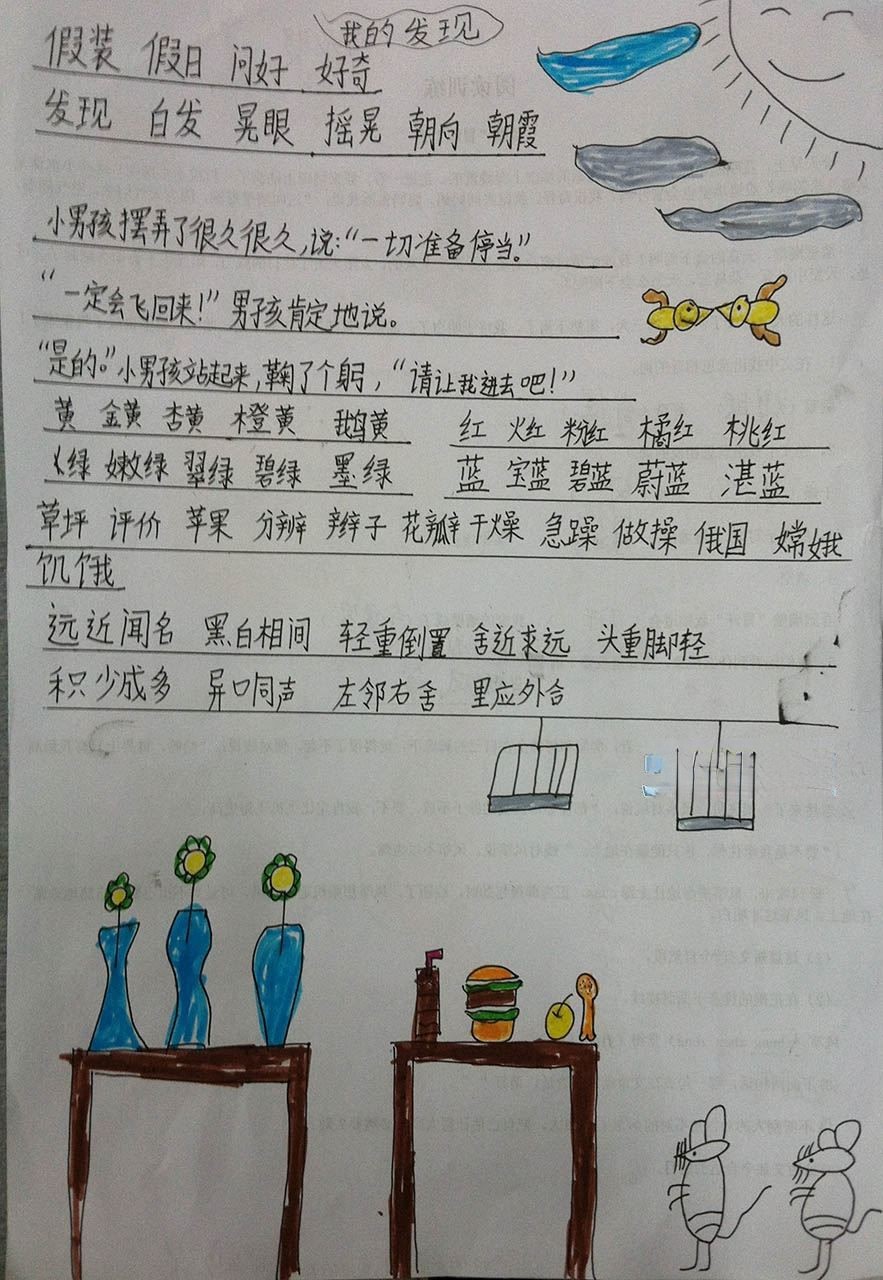 我的发现
假装 假日 问好 好奇
发现 白发 晃眼 摇晃 朝向 朝霞
小男孩摆弄了很久很久,说:“一切准备停当。”
“一定会飞回来!”男孩肯定地说。
“是的。”小男孩站起来,鞠了个躬,“请让我进去吧!”
黄 金黄 杏黄 橙黄 鹅黄 红 火红 粉红 橘红 桃红
绿 嫩绿 翠绿 碧绿 墨绿 蓝 宝蓝 碧蓝 蔚蓝 湛蓝
草坪 评价 苹果 分辨 辫子 花瓣 干燥 急躁 做操 俄国 嫦娥
饥饿
远近闻名 黑白相间 轻重倒置 舍近求远 头重脚轻
积少成多 异口同声 左邻右舍 里应外合